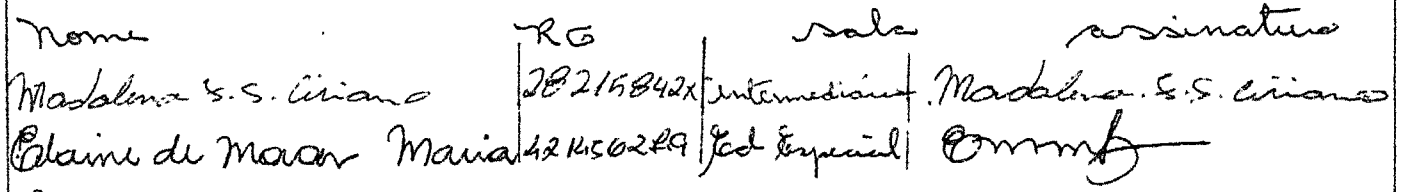 nome RG sala assinatura
Madalena S.S. Ciriano 28215842x intermediária Madalena S.S. Ciriano
Elaine de Maria Ed Especial